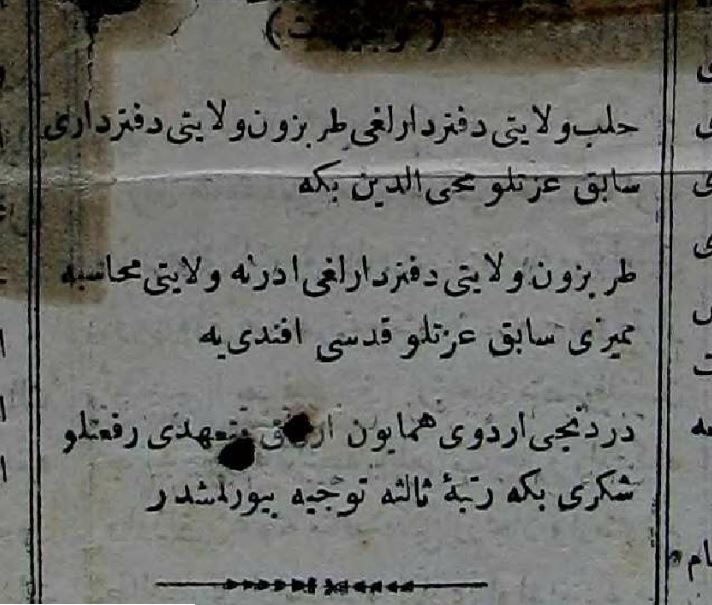 حلب ولايتى دفتردارلغى طربزون ولايتى دفتردارى
سابق عزتلو محى الدين بكه
طربزون ولايتى دفتردارلغى ادرنه ولايتى محاسبه
مميزى سابق عزتلو قدسى افندى يه
دردنجى اردوى همايون ارزاق متعهدى رفعتلو
شكرى بكه رتبهٔ ثالثه توجيه بيورلمشدر